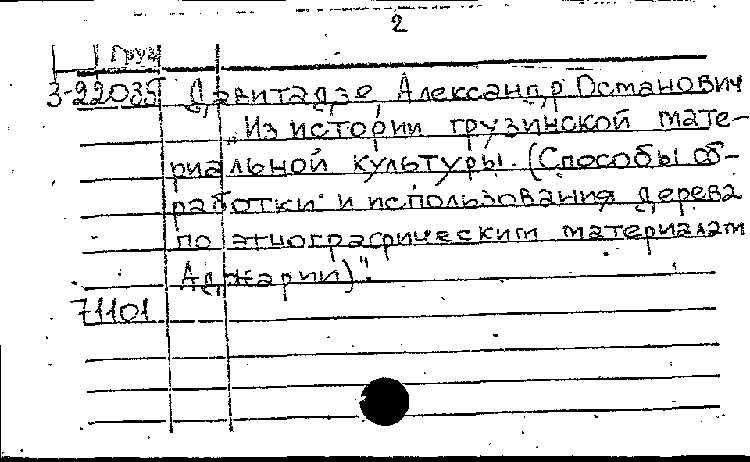 2
Груз
3-22035 Давитадзе, Александр Османович
„Из истории грузинской мате-
риальной культуры. (Способы об-
работки и использования дерева
по этнографическим материалам
Аджарии)".
71101